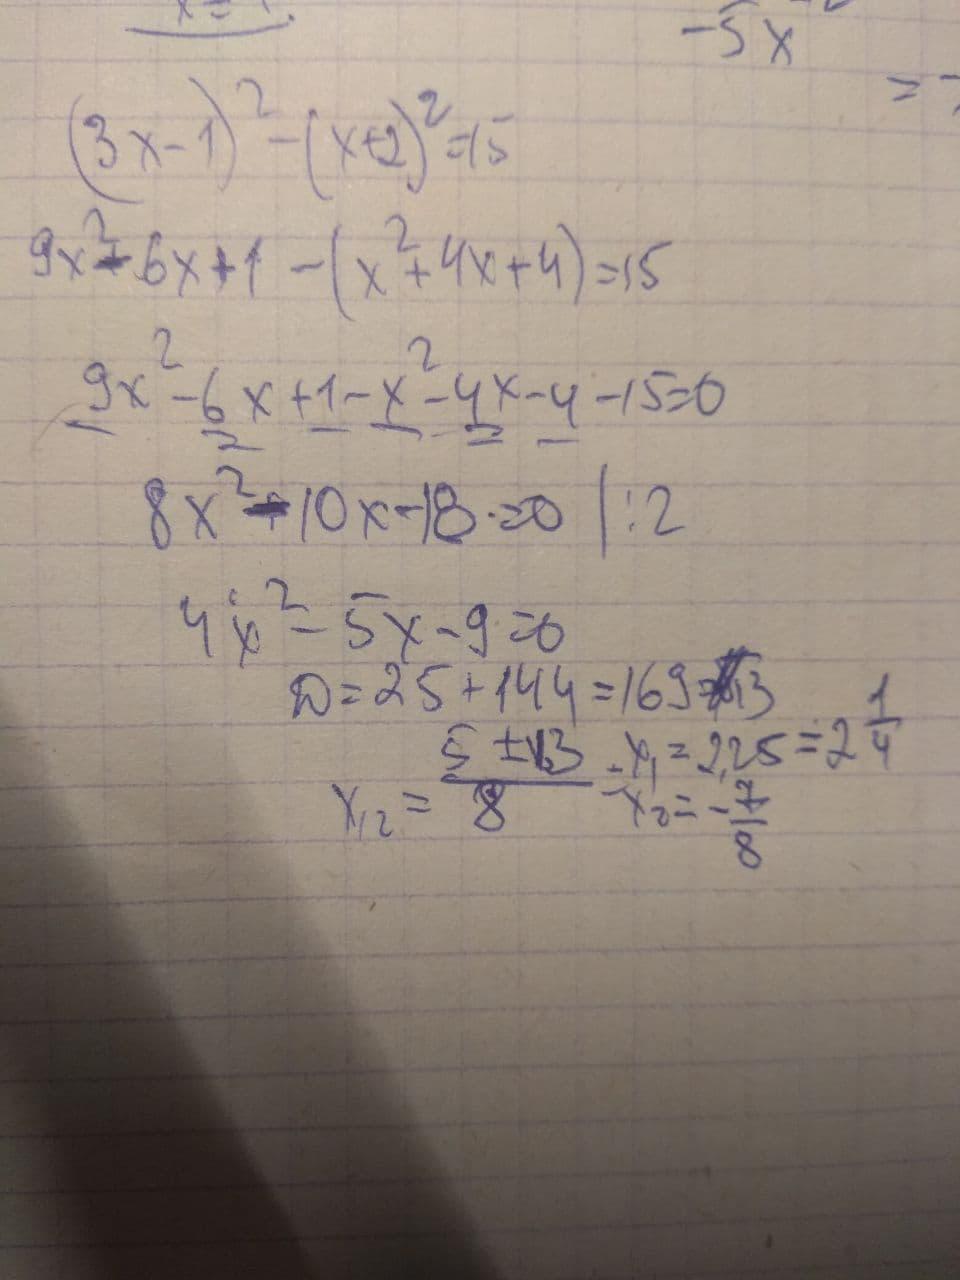 -5x
(3x-1)²-(x+2)²=15
9x²-6x+1-(x²+4x+4)=15
9x²-6x+1-x²-4x-4-15=0
8x²-10x-18=0 |:2
4x²-5x-9=0
D=25+144=169=13
x₁₂= (5±13)/8 x₁=2,25=2 1/4
x₂=-7/8